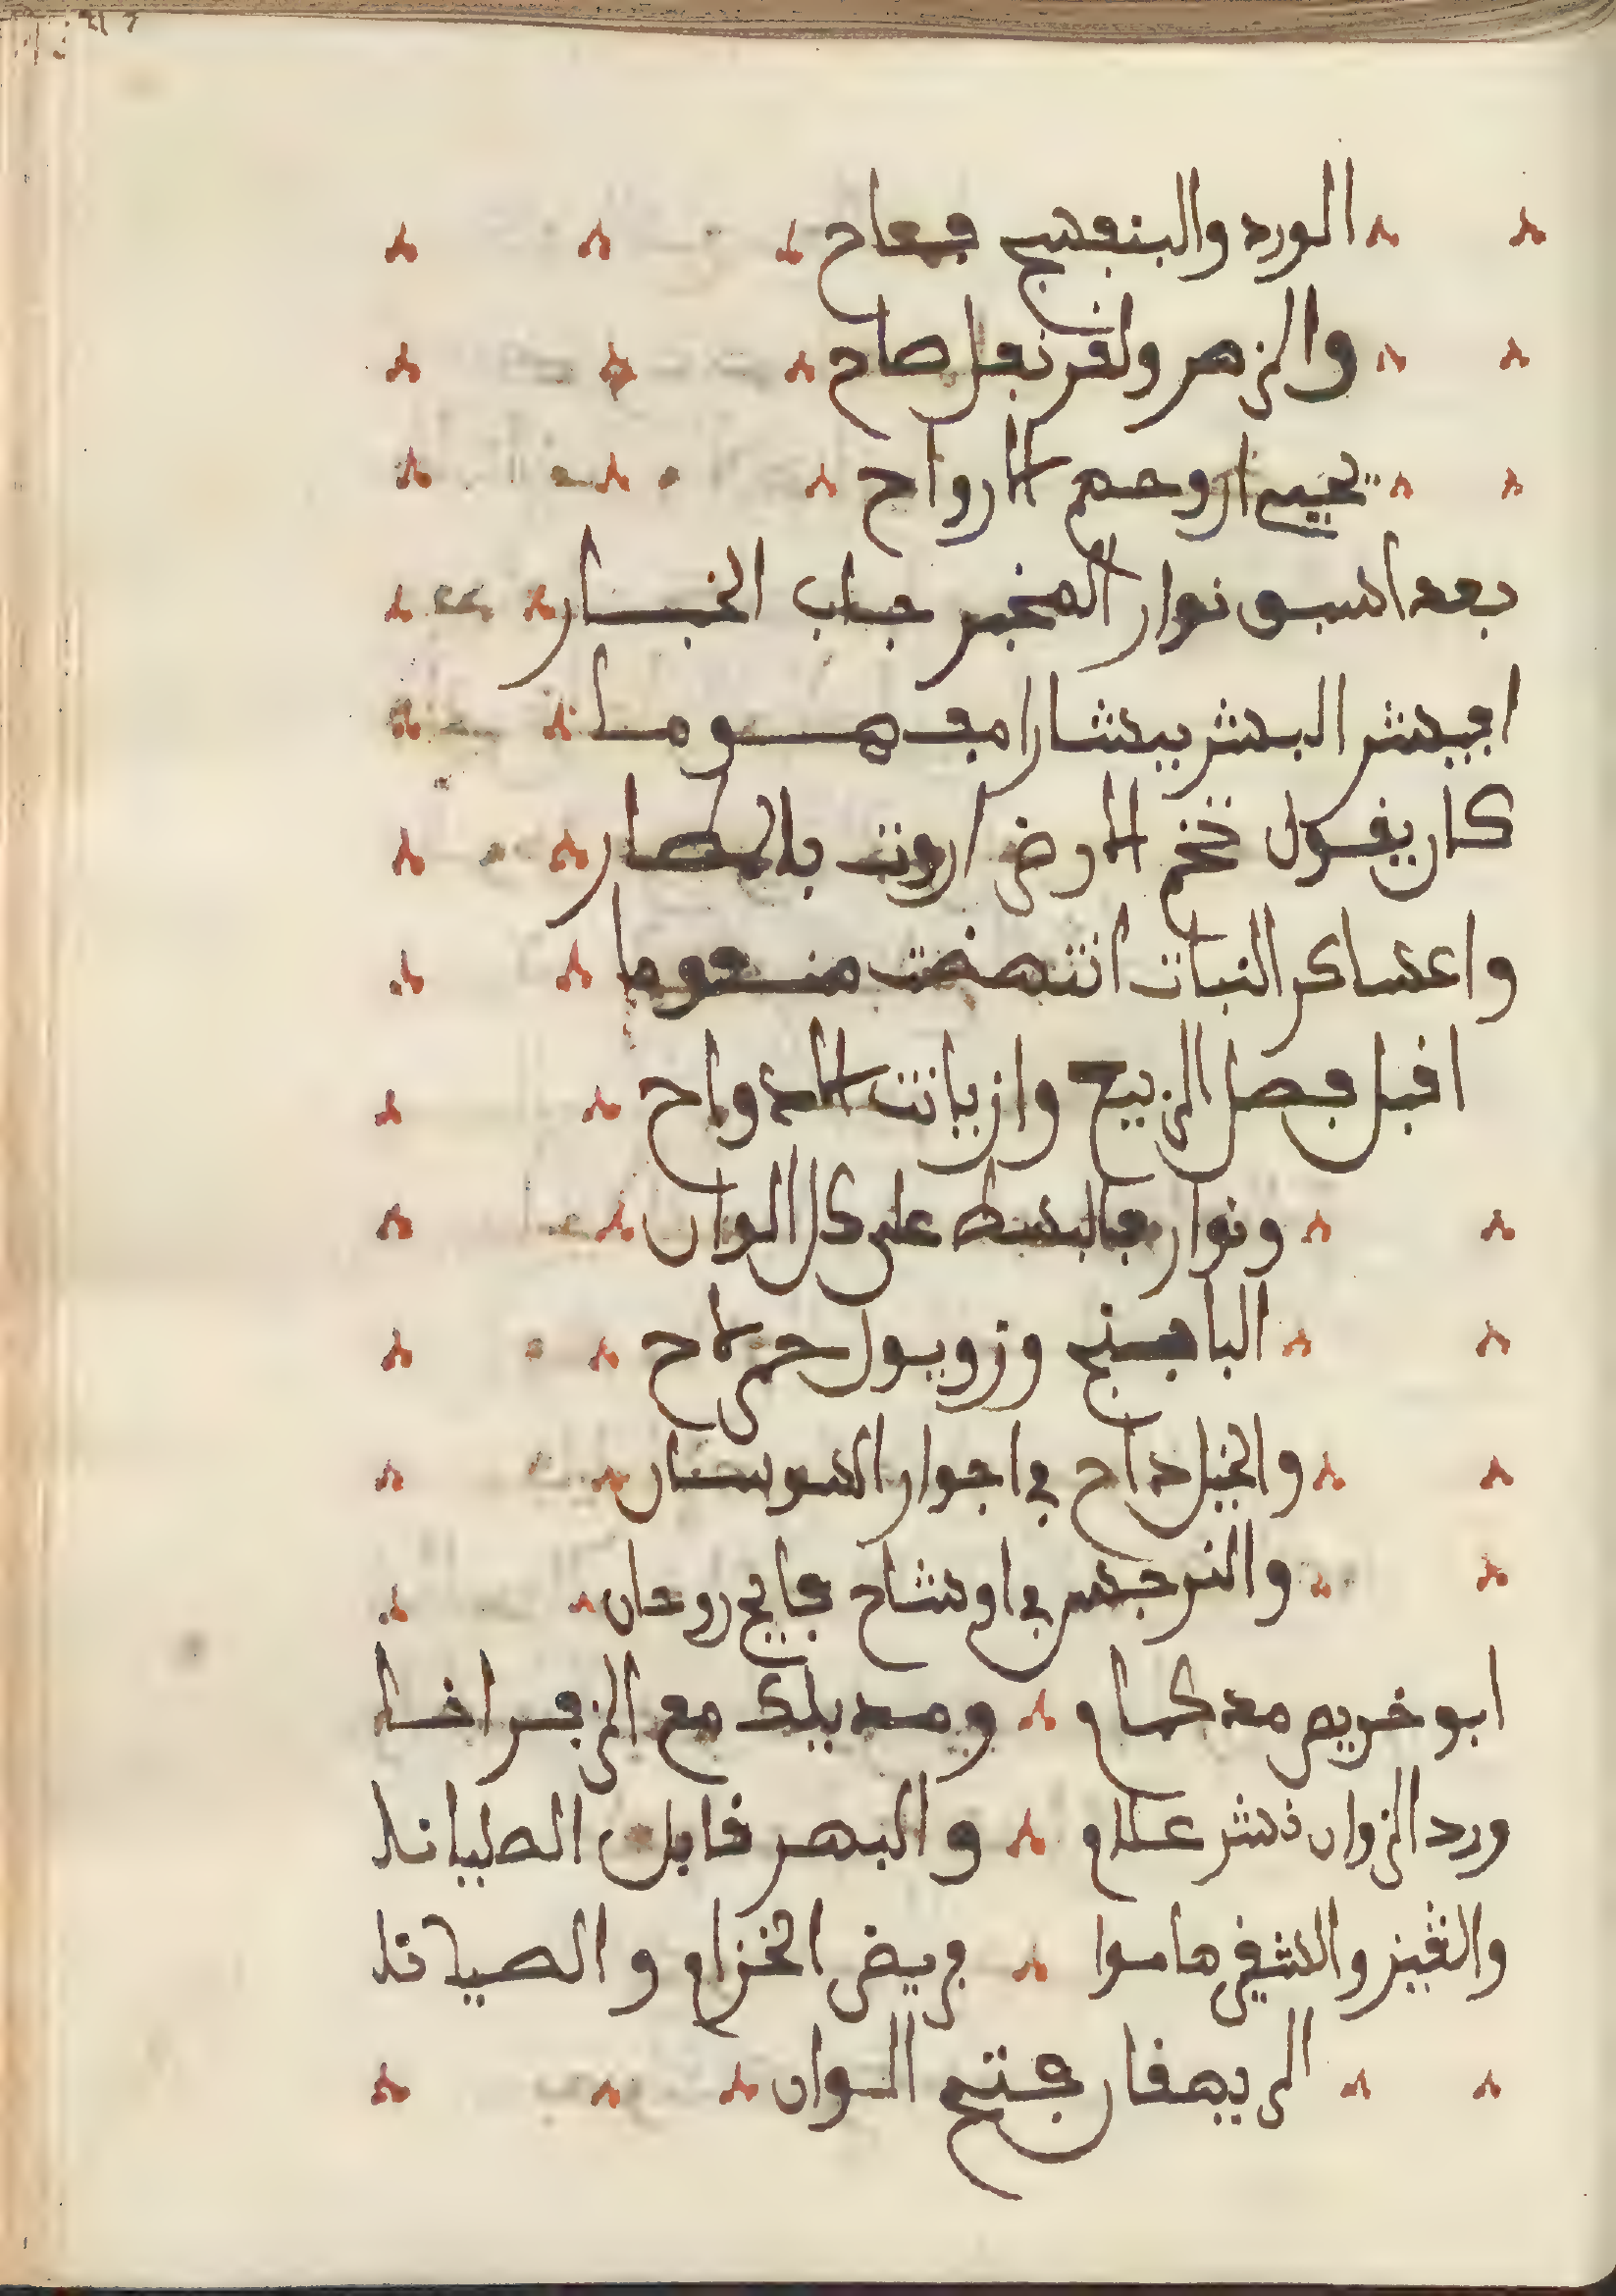 الورد والبنفسج فاح
والزهر ولقرنفل صاح
تحيي اروحم الارواح
بعد اسبو نوار المخبر جاب الخبار
ابيبشر البشر ببشارا مفهوما
كان يقول تخم الارض اروت بالامطار
واعساكر النبات انتهضت منعوما
اقبل فصل الربيع وازيانت الادواح
ونوار فالبسط على كل الوان
البابنج وزوبول حرماح
والخيل داح في اجوار السوسان
والنرجس في اوشاح فايح روحان
ابو خريص مد كمام ومد بيلك مع الزفرافا
ورد الزوان نشر علام والبهر قابل الطليانا
والقبز والشقي هاموا في يض الخزام والصيانا
الريهقان فتح الوان